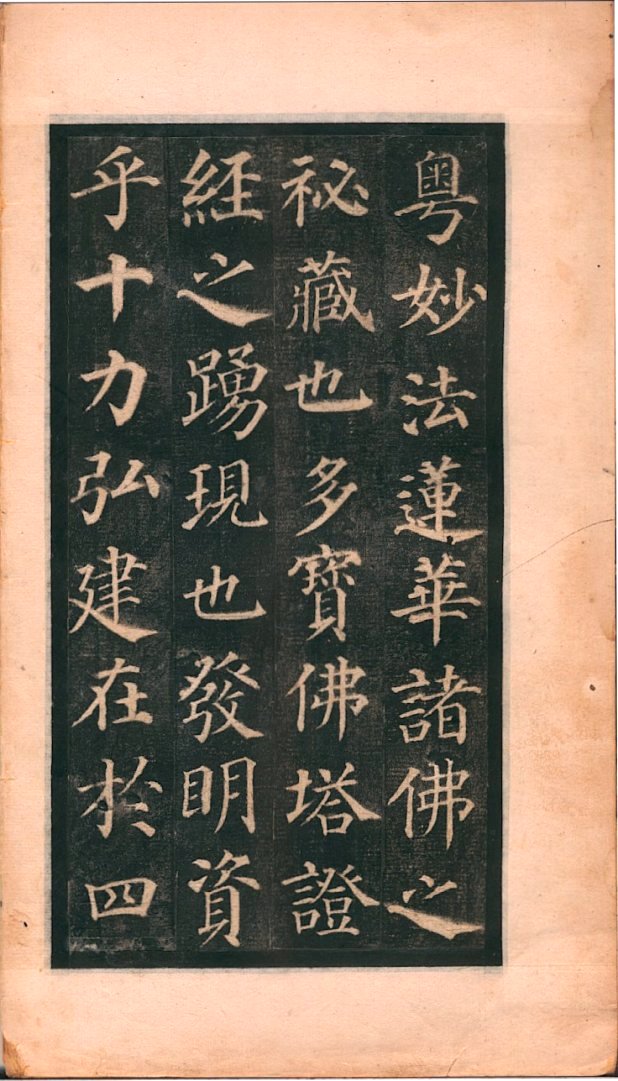 粤妙法蓮華諸佛之
祕藏也多寶佛塔證
經之踴現也發明資
乎十力弘建在於四